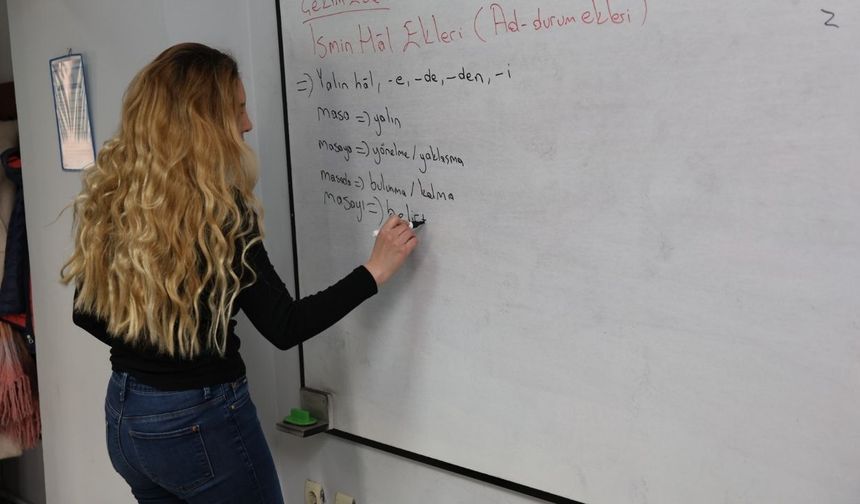 İsmin Hâl Ekleri (Ad-durum ekleri)
=) Yalın hâl, -e, -de, -den, -i
masa =) yalın
masaya =) yönelme/yaklaşma
masada =) bulunma/kalma
masayı =) belirt
2